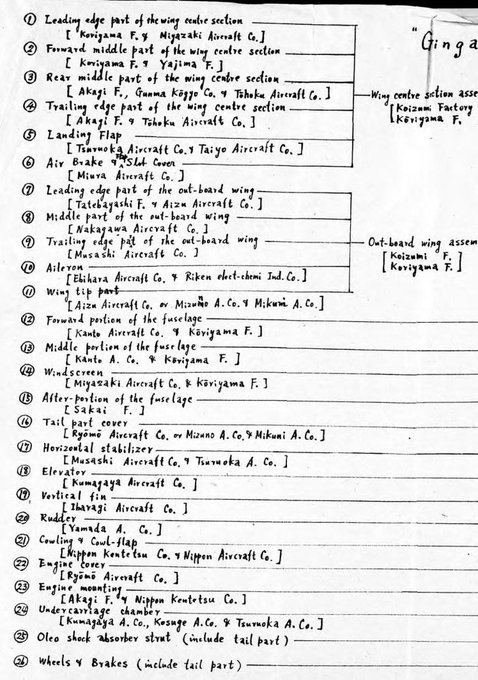 "Ginga
① Leading edge part of the wing centre section
[ Koriyama F. & Miyazaki Aircraft Co. ]
② Forward middle part of the wing centre section
[ Koriyama F. & Yajima F. ]
③ Rear middle part of the wing centre section
[ Akagi F., Gunma Kōgyo Co. & Tōhoku Aircraft Co. ]
Wing centre section asse
[ Koizumi Factory
Kōriyama F.
④ Trailing edge part of the wing centre section
[ Akagi F. & Tōhoku Aircraft Co. ]
⑤ Landing Flap
[ Tsuruoka Aircraft Co. & Taiyo Aircraft Co. ]
⑥ Air Brake & Flap Slot Cover
[ Miura Aircraft Co. ]
⑦ Leading edge part of the out-board wing
[ Tatebayashi F. & Aizu Aircraft Co. ]
⑧ Middle part of the out-board wing
[ Nakagawa Aircraft Co. ]
⑨ Trailing edge pat of the out-board wing
[ Musashi Aircraft Co. ]
Out-board wing assem
[ Koizumi F.
Koriyama F. ]
⑩ Aileron
[ Ebihara Aircraft Co. & Riken elect-chemi Ind. Co. ]
⑪ Wing tip part
[ Aizu Aircraft Co. or Mizuno A. Co. & Mikuni A. Co. ]
⑫ Forward portion of the fuselage
[ Kanto Aircraft Co. & Kōriyama F. ]
⑬ Middle portion of the fuselage
[ Kanto A. Co. & Kōriyama F. ]
⑭ Windscreen
[ Miyazaki Aircraft Co. & Kōriyama F. ]
⑮ After-portion of the fuselage
[ Sakai F. ]
⑯ Tail part cover
[ Ryōmō Aircraft Co. or Mizuno A. Co. & Mikuni A. Co. ]
⑰ Horizontal stabilizer
[ Musashi Aircraft Co. & Tsuruoka A. Co. ]
⑱ Elevator
[ Kumagaya Aircraft Co. ]
⑲ Vertical fin
[ Ibaragi Aircraft Co. ]
⑳ Rudder
[ Yamada A. Co. ]
㉑ Cowling & Cowl-flap
[ Nippon Kentetsu Co. & Nippon Aircraft Co. ]
㉒ Engine cover
[ Ryōmō Aircraft Co. ]
㉓ Engine mounting
[ Akagi F. & Nippon Kentetsu Co. ]
㉔ Undercarriage chamber
[ Kumagaya A. Co., Kosuge A. Co. & Tsuruoka A. Co. ]
㉕ Oleo shock absorber strut (include tail part)
㉖ Wheels & Brakes (include tail part)